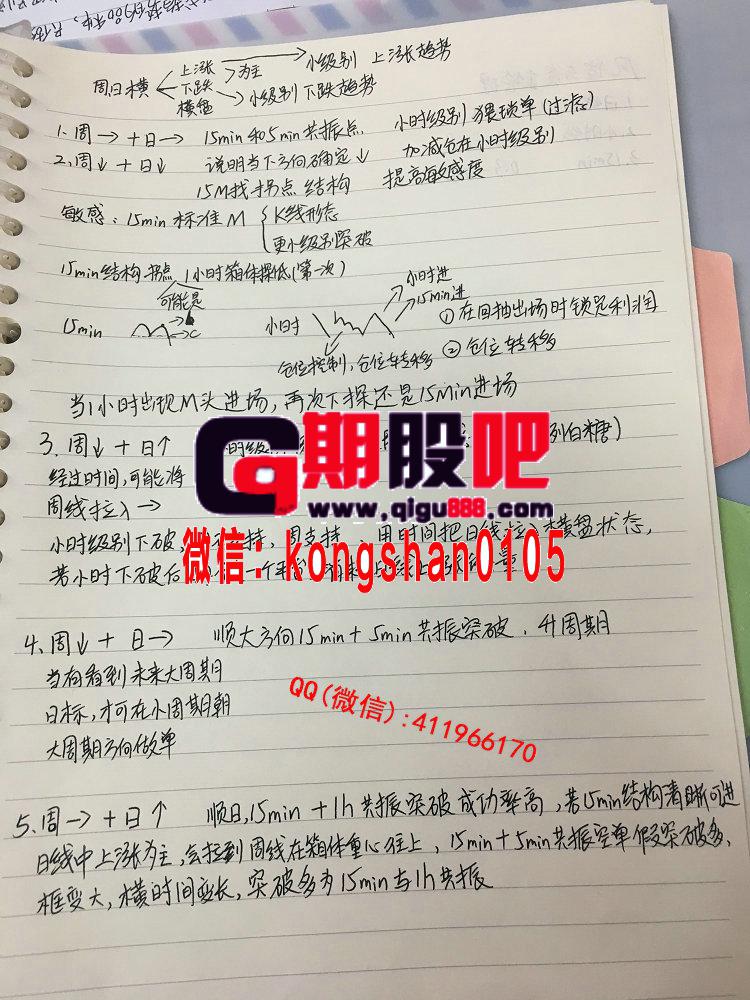 周日横 上涨 下跌 横盘 为主 小级别 上涨趋势
小级别 下跌趋势
1. 周→+日→ 15min和5min共振点 小时级别 猥琐单(过滤)
2. 周↓+日↓ 说明当下方向确定↓ 加减仓在小时级别
15M找拐点 结构 提高敏感度
敏感: 15min 标准M K线形态
更小级别突破
15min结构 拐点 1小时箱体探低(第一次)
可能是
15min C 小时 小时进
15min进
① 在回抽出场时锁足利润
仓位控制, 仓位转移 ② 仓位转移
当1小时出现M头进场, 再次下探还是15Min进场
3. 周↓+日↑ 列白糖)
经过时间, 可能将
周线拉入→
小时级别下破, 周支持, 用时间把日线拉入横盘状态,
若小时下破后
期股吧
www.qigu888.com
微信: kongshan0105
4. 周↓+日→ 顺大方向15min+5min共振突破. 升周期
当有看到未来大周期
目标, 才可在小周期朝
大周期方向做单
QQ(微信):411966170
5. 周→+日↑ 顺日, 15min+1h共振突破成功率高, 若15min结构清晰可进
日线中上涨为主, 会拉到周线在箱体重心往上, 15min+5min共振空单假突破多,
框变大, 横时间变长, 突破多为15min与1h共振